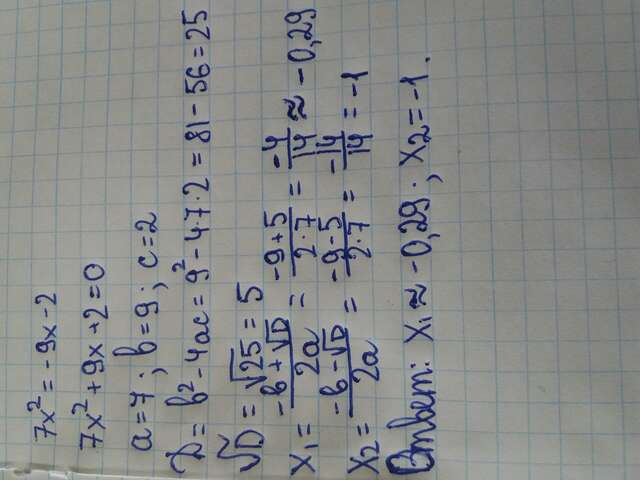 7x² = -9x-2
7x² + 9x + 2 = 0
a = 7 ; b = 9 ; c = 2
D = b² - 4ac = 9² - 4·7·2 = 81 - 56 = 25
√D = √25 = 5
x₁ = (-b + √D)/(2a) = (-9+5)/(2·7) = (-4)/(14) ≈ -0,29
x₂ = (-b - √D)/(2a) = (-9-5)/(2·7) = -(14)/(14) = -1
Ответ: x₁ ≈ -0,29 ; x₂ = -1.